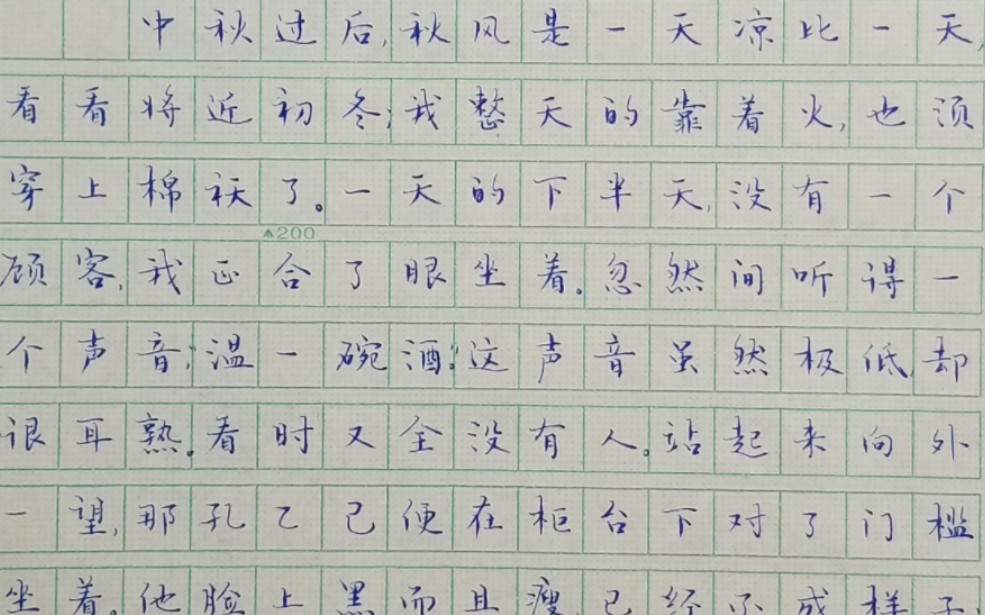 中秋过后,秋风是一天凉比一天,
看看将近初冬;我整天的靠着火,也须
穿上棉袄了。一天的下半天,没有一个
▲200
顾客,我正合了眼坐着。忽然间听得一
个声音,"温一碗酒。"这声音虽然极低,却
很耳熟。看时又全没有人。站起来向外
一望,那孔乙己便在柜台下对了门槛
坐着。他脸上黑而且瘦,已经不成样子,